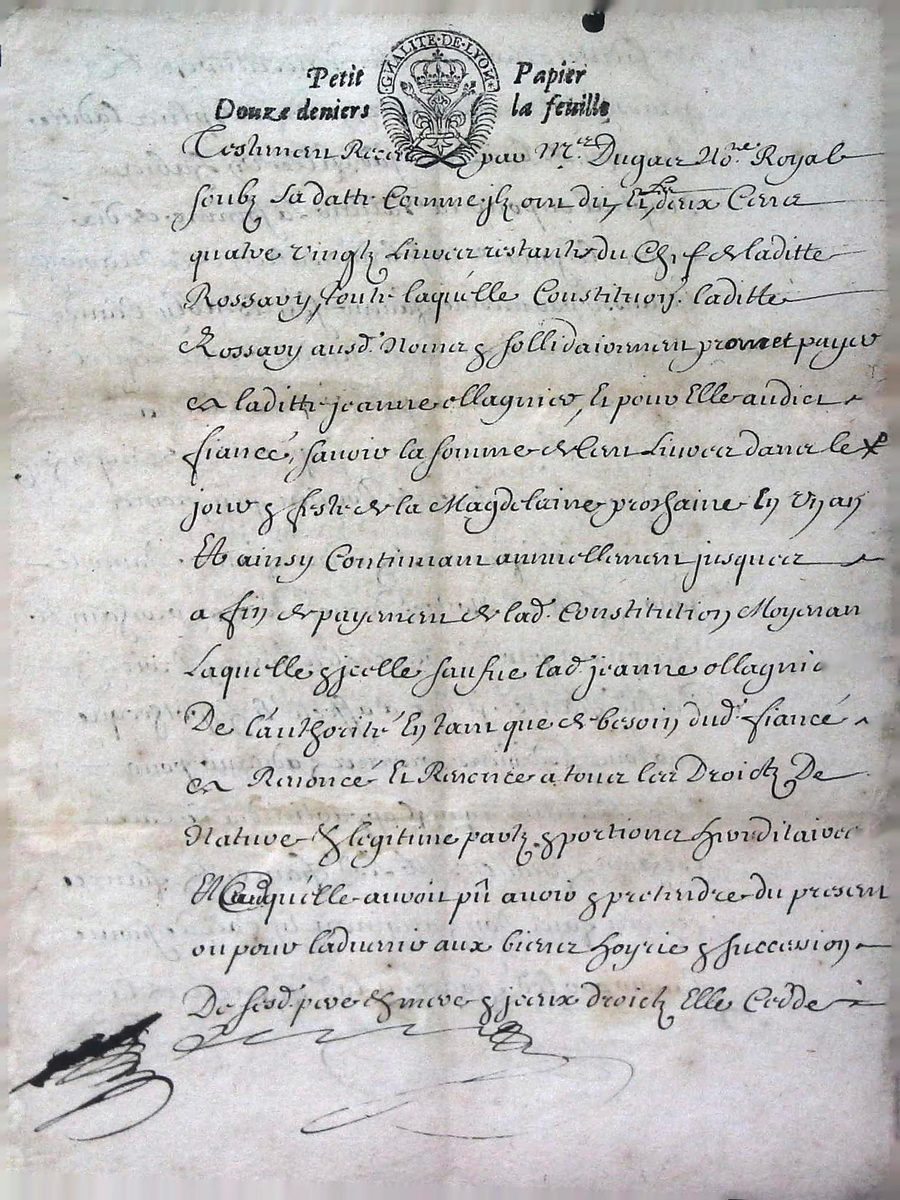 GNALITE·DE·LYON
Petit Papier
Douze deniers la feuille
Testament Receu par Mre Dugas Nore Royal
soubz sa datte Comme ilz ont dit, Et deux Cens
quatre vingtz Livres restantz du Chef de laditte
Rossary, toute laquelle Constitution laditte
Rossary ausd. Noms & sollidairement promet payer
a laditte jeanne ollagnier, Et pour Elle audict
fiancé, savoir la somme de Cent Livres dans le
jour & feste de la Magdelaine prochaine En Un an
Et ainsy Continuant annuellement jusques
a fin de payement de lad. Constitution Moyenant
Laquelle & jcelle saufve lad. jeanne ollagnier
De l'authorité En tant que de besoin dud. fiancé
a Renoncé Et Renonce a tous les Droictz De
Nature & legitime partz & portions hereditaires
Et quelle auroit pû avoir & pretendre du present
ou pour ladvenir aux biens hoyrie & succession
De sesd. pere & mere & jceux droictz Elle Cedde